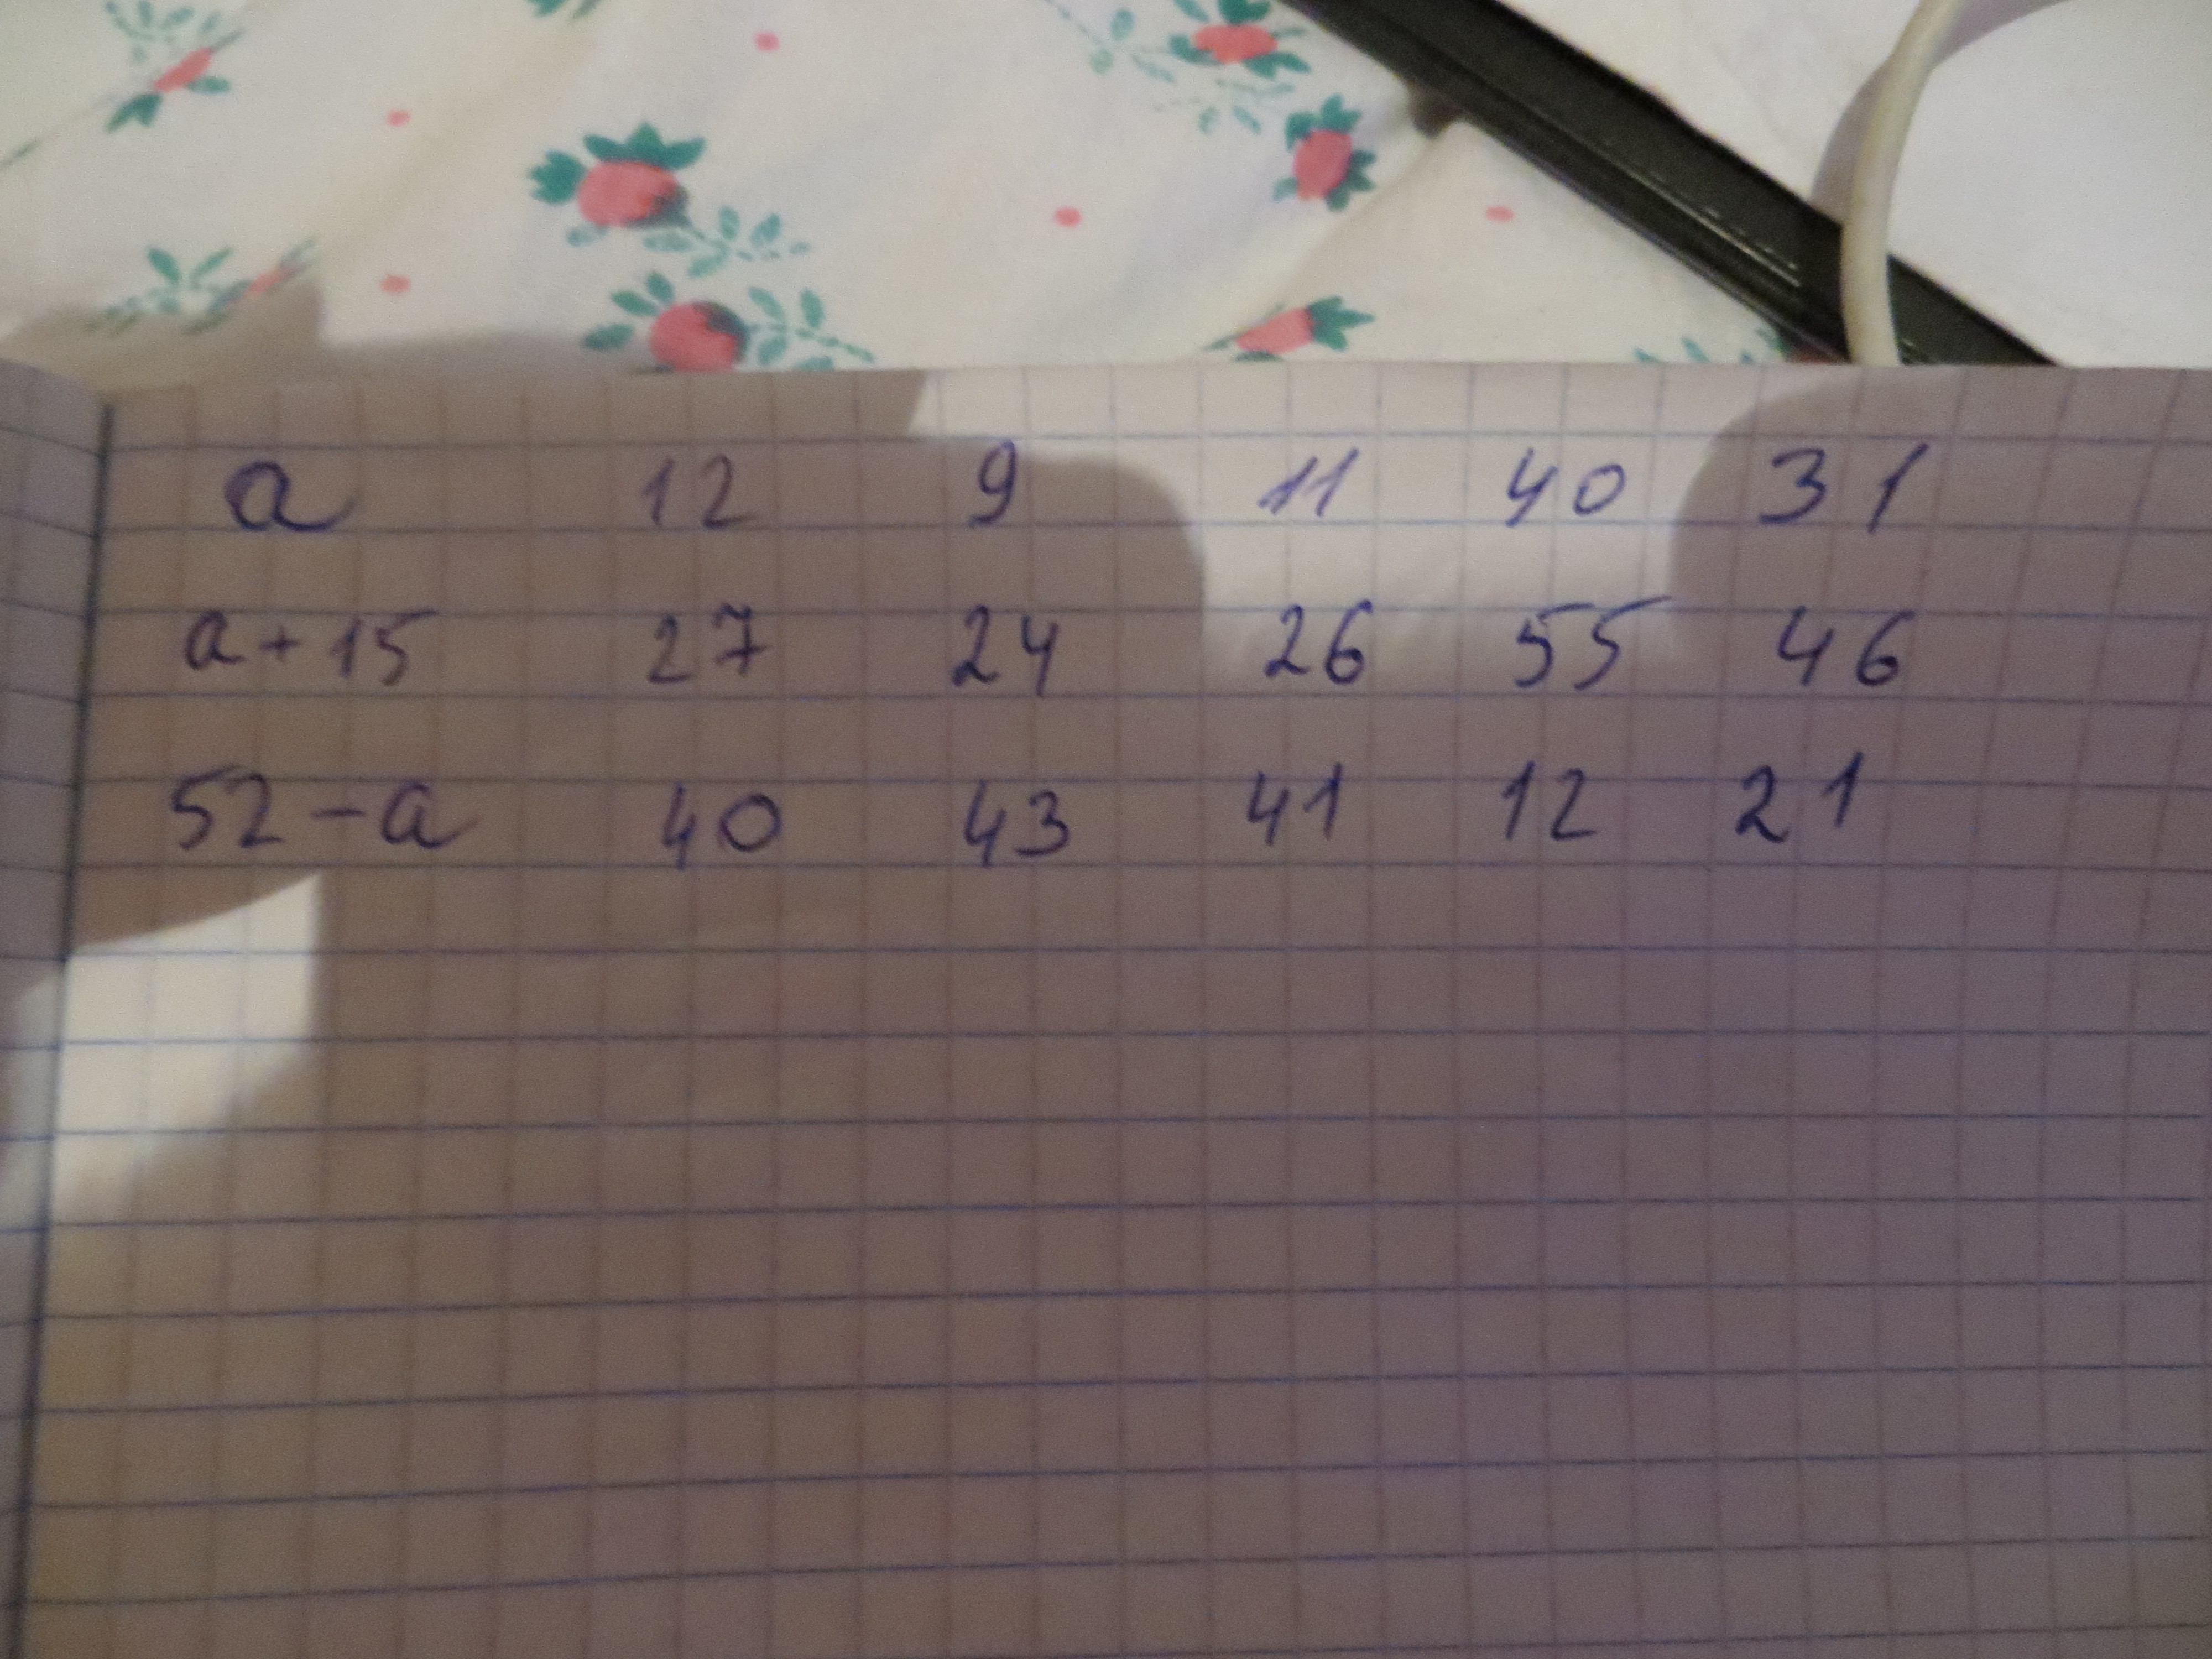 a 12 9 11 40 31
a + 15 27 24 26 55 46
52 - a 40 43 41 12 21